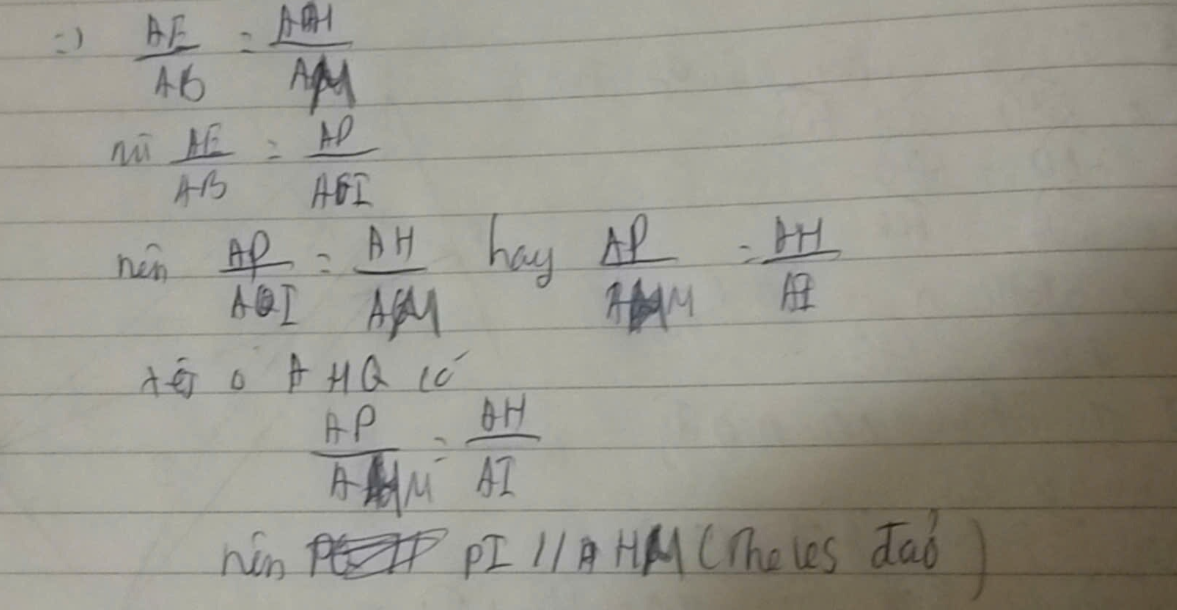 =) AE/AB = AH/AM
mà AE/AB = AP/AI
nên AP/AI = AH/AM hay AP/AM = AH/AI
xét △ AHQ có
AP/AM = AH/AI
nên PI // HM (Theles đảo)